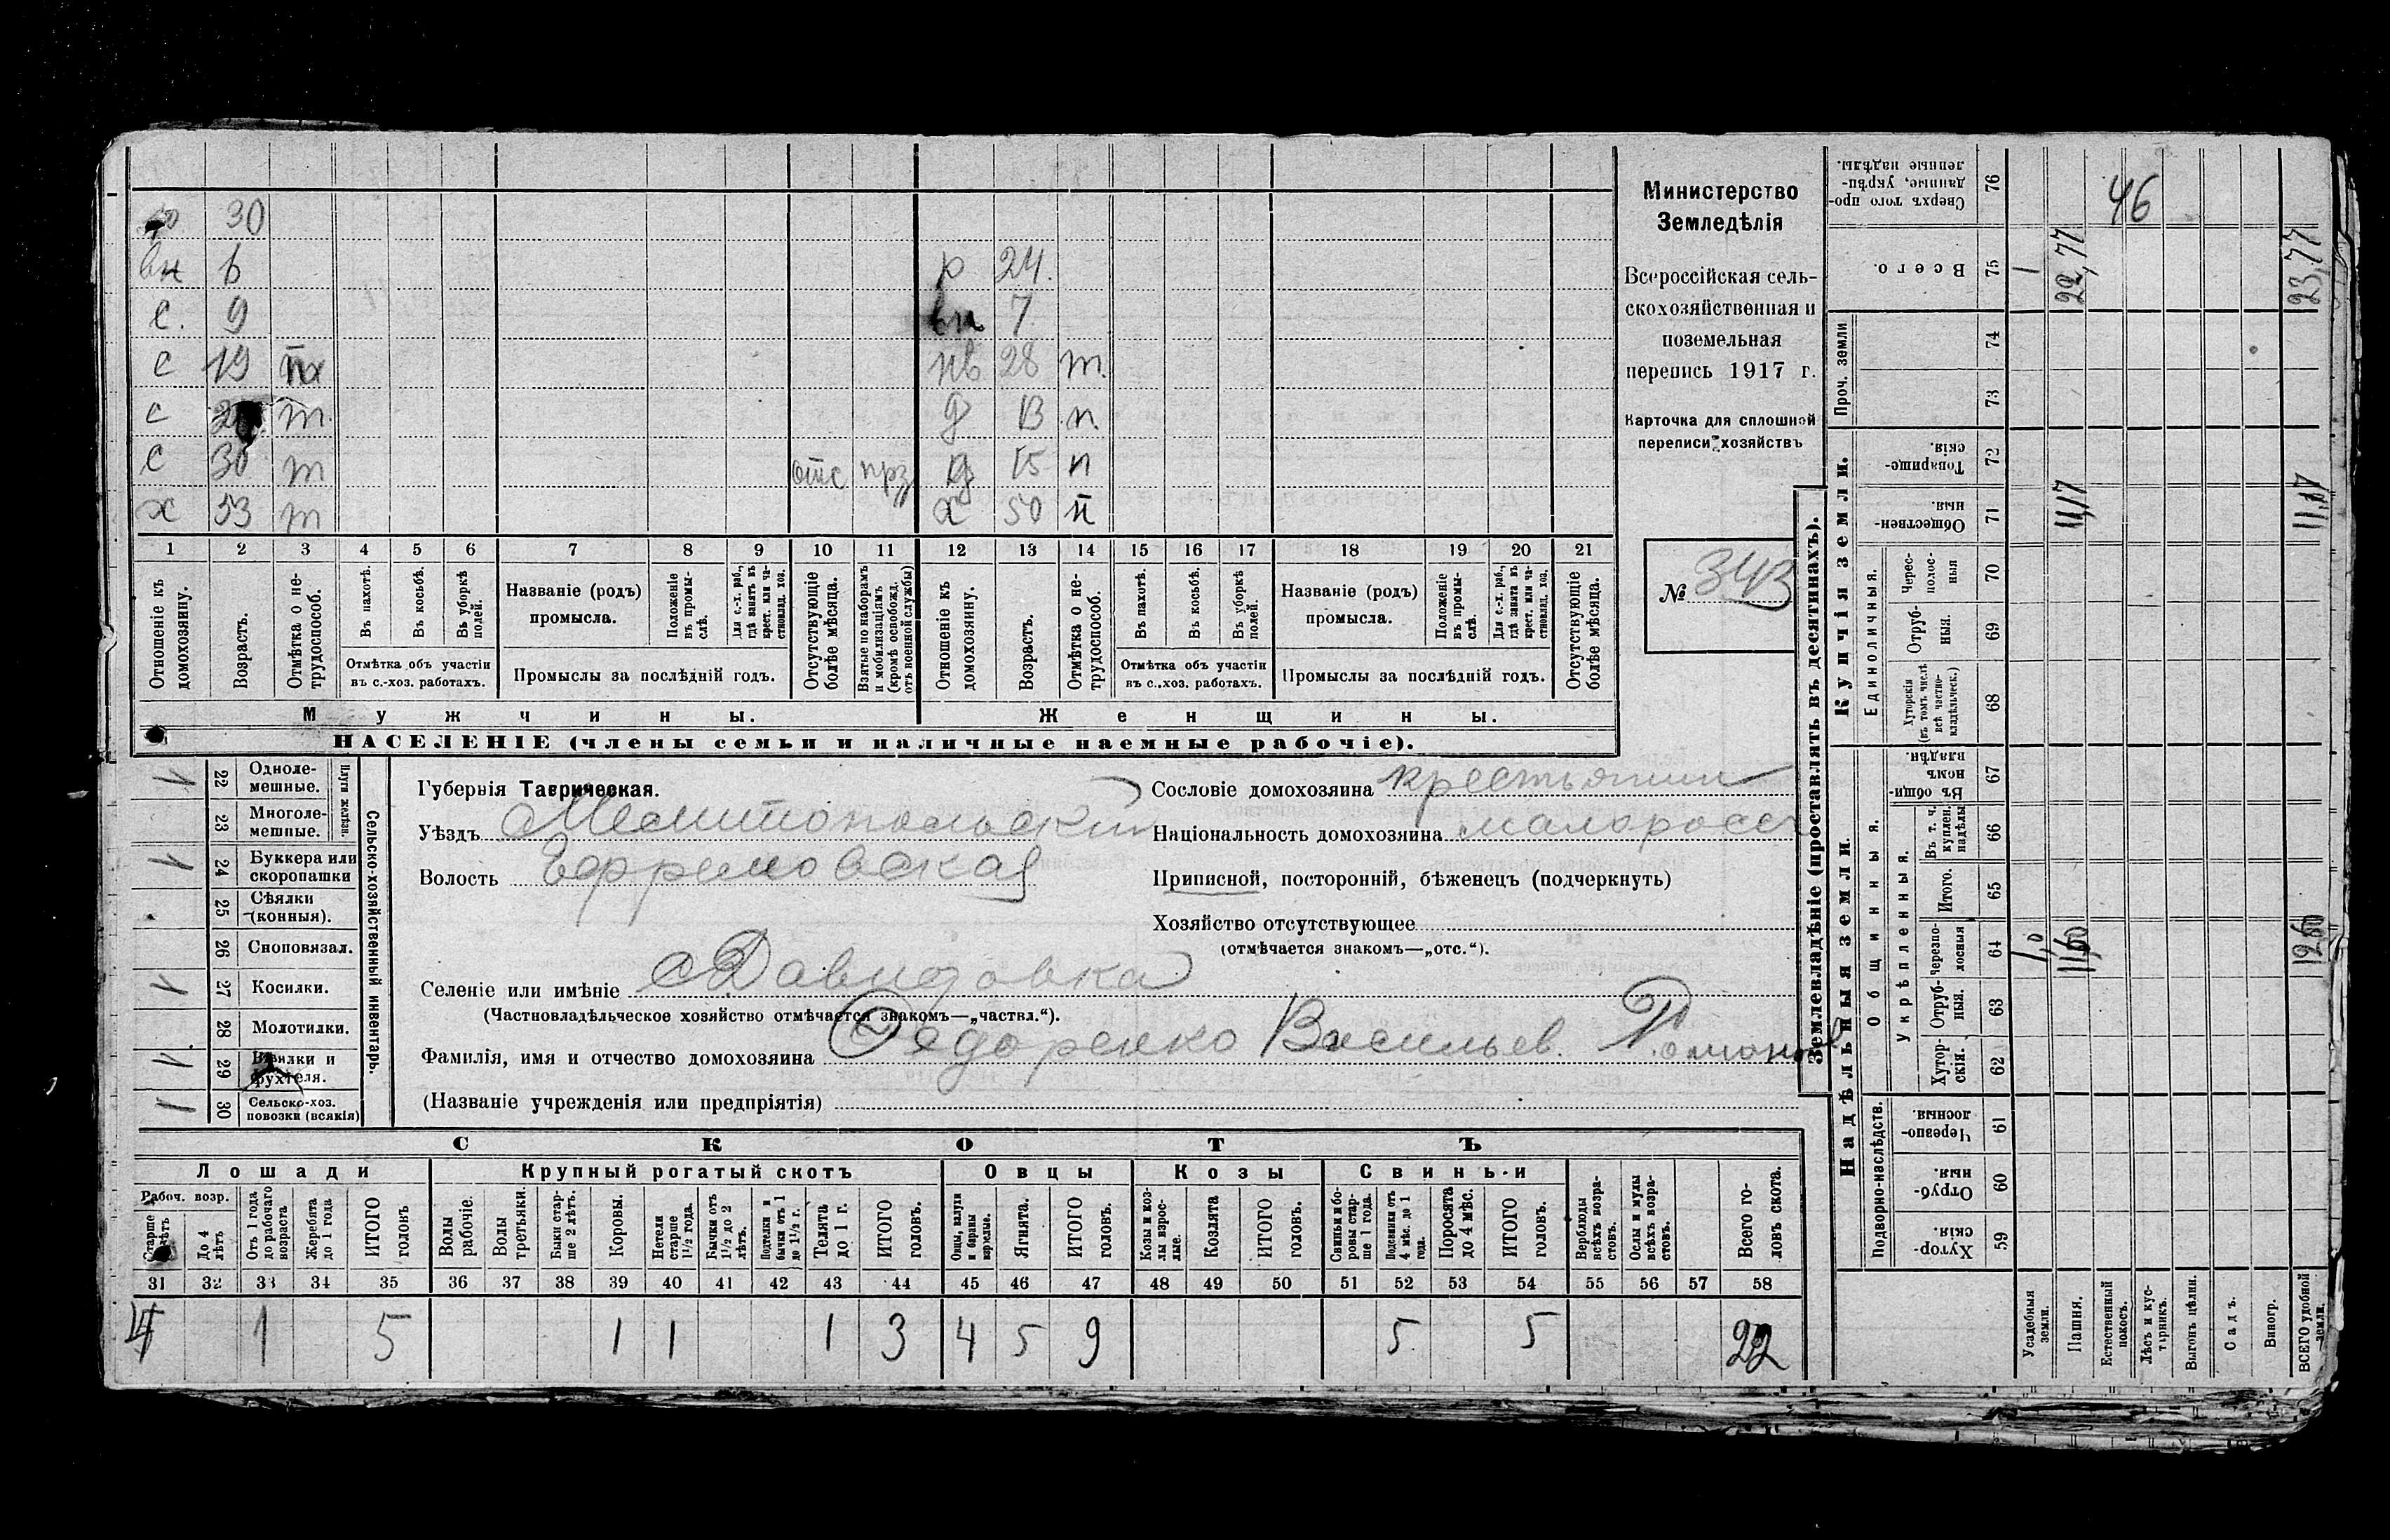 30
вн 6 р 24.
с. 9 вн 7
с 19 нв 28 т.
с т. д 13 п.
с 30 т отс прз д 15 п
х 53 т х 50 п
1 2 3 4 5 6 7 8 9 10 11 12 13 14 15 16 17 18 19 20 21
Отношеніе къ домохозяину.
Возрастъ.
Отмѣтка о не-трудоспособ.
Въ пахотѣ.
Въ косьбѣ.
Въ уборкѣ полей.
Отмѣтка объ участіи
въ с.-хоз. работахъ.
Названіе (родъ)
промысла.
Положеніе въ промы-слѣ.
Для с.-х. раб., гдѣ занятъ въ крест. или ча-стновлад. хоз.
Промыслы за послѣдній годъ.
Отсутствующіе болѣе мѣсяца.
Взятые по наборамъ и мобилизаціямъ (кромѣ освобожд. отъ военной службы)
Отношеніе къ домохозяину.
Возрастъ.
Отмѣтка о не-трудоспособ.
Въ пахотѣ.
Въ косьбѣ.
Въ уборкѣ полей.
Отмѣтка объ участіи
въ с.-хоз. работахъ.
Названіе (родъ)
промысла.
Положеніе въ промы-слѣ.
Для с.-х. раб., гдѣ занята въ крест. или ча-стновлад. хоз.
Промыслы за послѣдній годъ.
Отсутствующіе болѣе мѣсяца.
Мужчины. Женщины.
НАСЕЛЕНІЕ (члены семьи и наличные наемные рабочіе).
Министерство
Земледѣлія
Всероссійская сель-
скохозяйственная и
поземельная
перепись 1917 г.
Карточка для сплошной
переписи хозяйствъ
№ 343
Сельско-хозяйственный инвентарь.
Плуги желѣзн.
1 22 Одноле-мешные.
23 Многоле-мешные.
1 24 Буккера или скоропашки
25 Сѣялки (конныя).
26 Сноповязал.
1 27 Косилки.
28 Молотилки.
1 29 Вѣялки и фухтеля.
1 30 Сельско-хоз. повозки (всякія)
Губернія Таврическая.
Уѣздъ Мелитопольский
Волость Ефремовская
Селеніе или имѣніе Давидовка
(Частновладѣльческое хозяйство отмѣчается знакомъ—„частвл.“).
Фамилія, имя и отчество домохозяина Федоренко Васильев.
(Названіе учрежденія или предпріятія)
Сословіе домохозяина крестьянин
Національность домохозяина малоросс
Приписной, посторонній, бѣженецъ (подчеркнуть)
Хозяйство отсутствующее
(отмѣчается знакомъ—„отс.“).
СКОТЪ
Лошади Крупный рогатый скотъ Овцы Козы Свиньи
Рабоч. возр.
Старше 4 лѣтъ
До 4 лѣтъ
Отъ 1 года до рабочаго возраста
Жеребята до 1 года
ИТОГО головъ
Волы рабочіе.
Волы третьяки.
Быки стар-ше 2 лѣтъ.
Коровы.
Нетели старше 1½ года.
Бычки отъ 1½ до 2 лѣтъ.
Подтелки и бычки отъ 1 до 1½ г.
Телята до 1 г.
ИТОГО головъ.
Овцы, валухи и бараны взрослые.
Ягнята.
ИТОГО головъ.
Козы и коз-лы взрос-лые.
Козлята
ИТОГО головъ.
Свиньи и бо-ровы стар-ше 1 года.
Подсвинки отъ 4 мѣс. до 1 года.
Поросята до 4 мѣс.
ИТОГО головъ.
Верблюды всѣхъ возра-стовъ.
Ослы и мулы всѣхъ возра-стовъ.
Всего го-ловъ скота.
31 32 33 34 35 36 37 38 39 40 41 42 43 44 45 46 47 48 49 50 51 52 53 54 55 56 57 58
4 1 5 1 1 1 3 4 5 9 5 5 22
Землевладѣніе (проставлять въ десятинахъ).
Купчія земли.
Надѣльныя земли.
Проч. земли
Единоличныя.
Общинныя.
Укрѣпленныя.
Подворно-наслѣдств.
Сверхъ того про-данные, укрѣп-ленные надѣлы. 76 46
Всего. 75 1 22,77 23,77
74
73
Товарище-скія 72
Обществен-ныя 71 11,17 11,17
Черес-полос-ныя 70
Отруб-ныя. 69
Хуторскія (въ томъ числѣ всѣ частно-владѣльческ.) 68
Въ общин-номъ владѣн. 67
Въ т. ч. куплен. надѣлы 66
Итого. 65
Черезпо-лосныя 64 1,0 11,60 12,60
Отруб-ныя. 63
Хутор-скія. 62
Черезпо-лосныя. 61
Отруб-ныя. 60
Хутор-скія. 59
Усадебныя земли.
Пашня.
Естественный покосъ.
Лѣсъ и кус-тарникъ.
Выгонъ цѣлин.
Садъ.
Виногр.
ВСЕГО удобной земли.